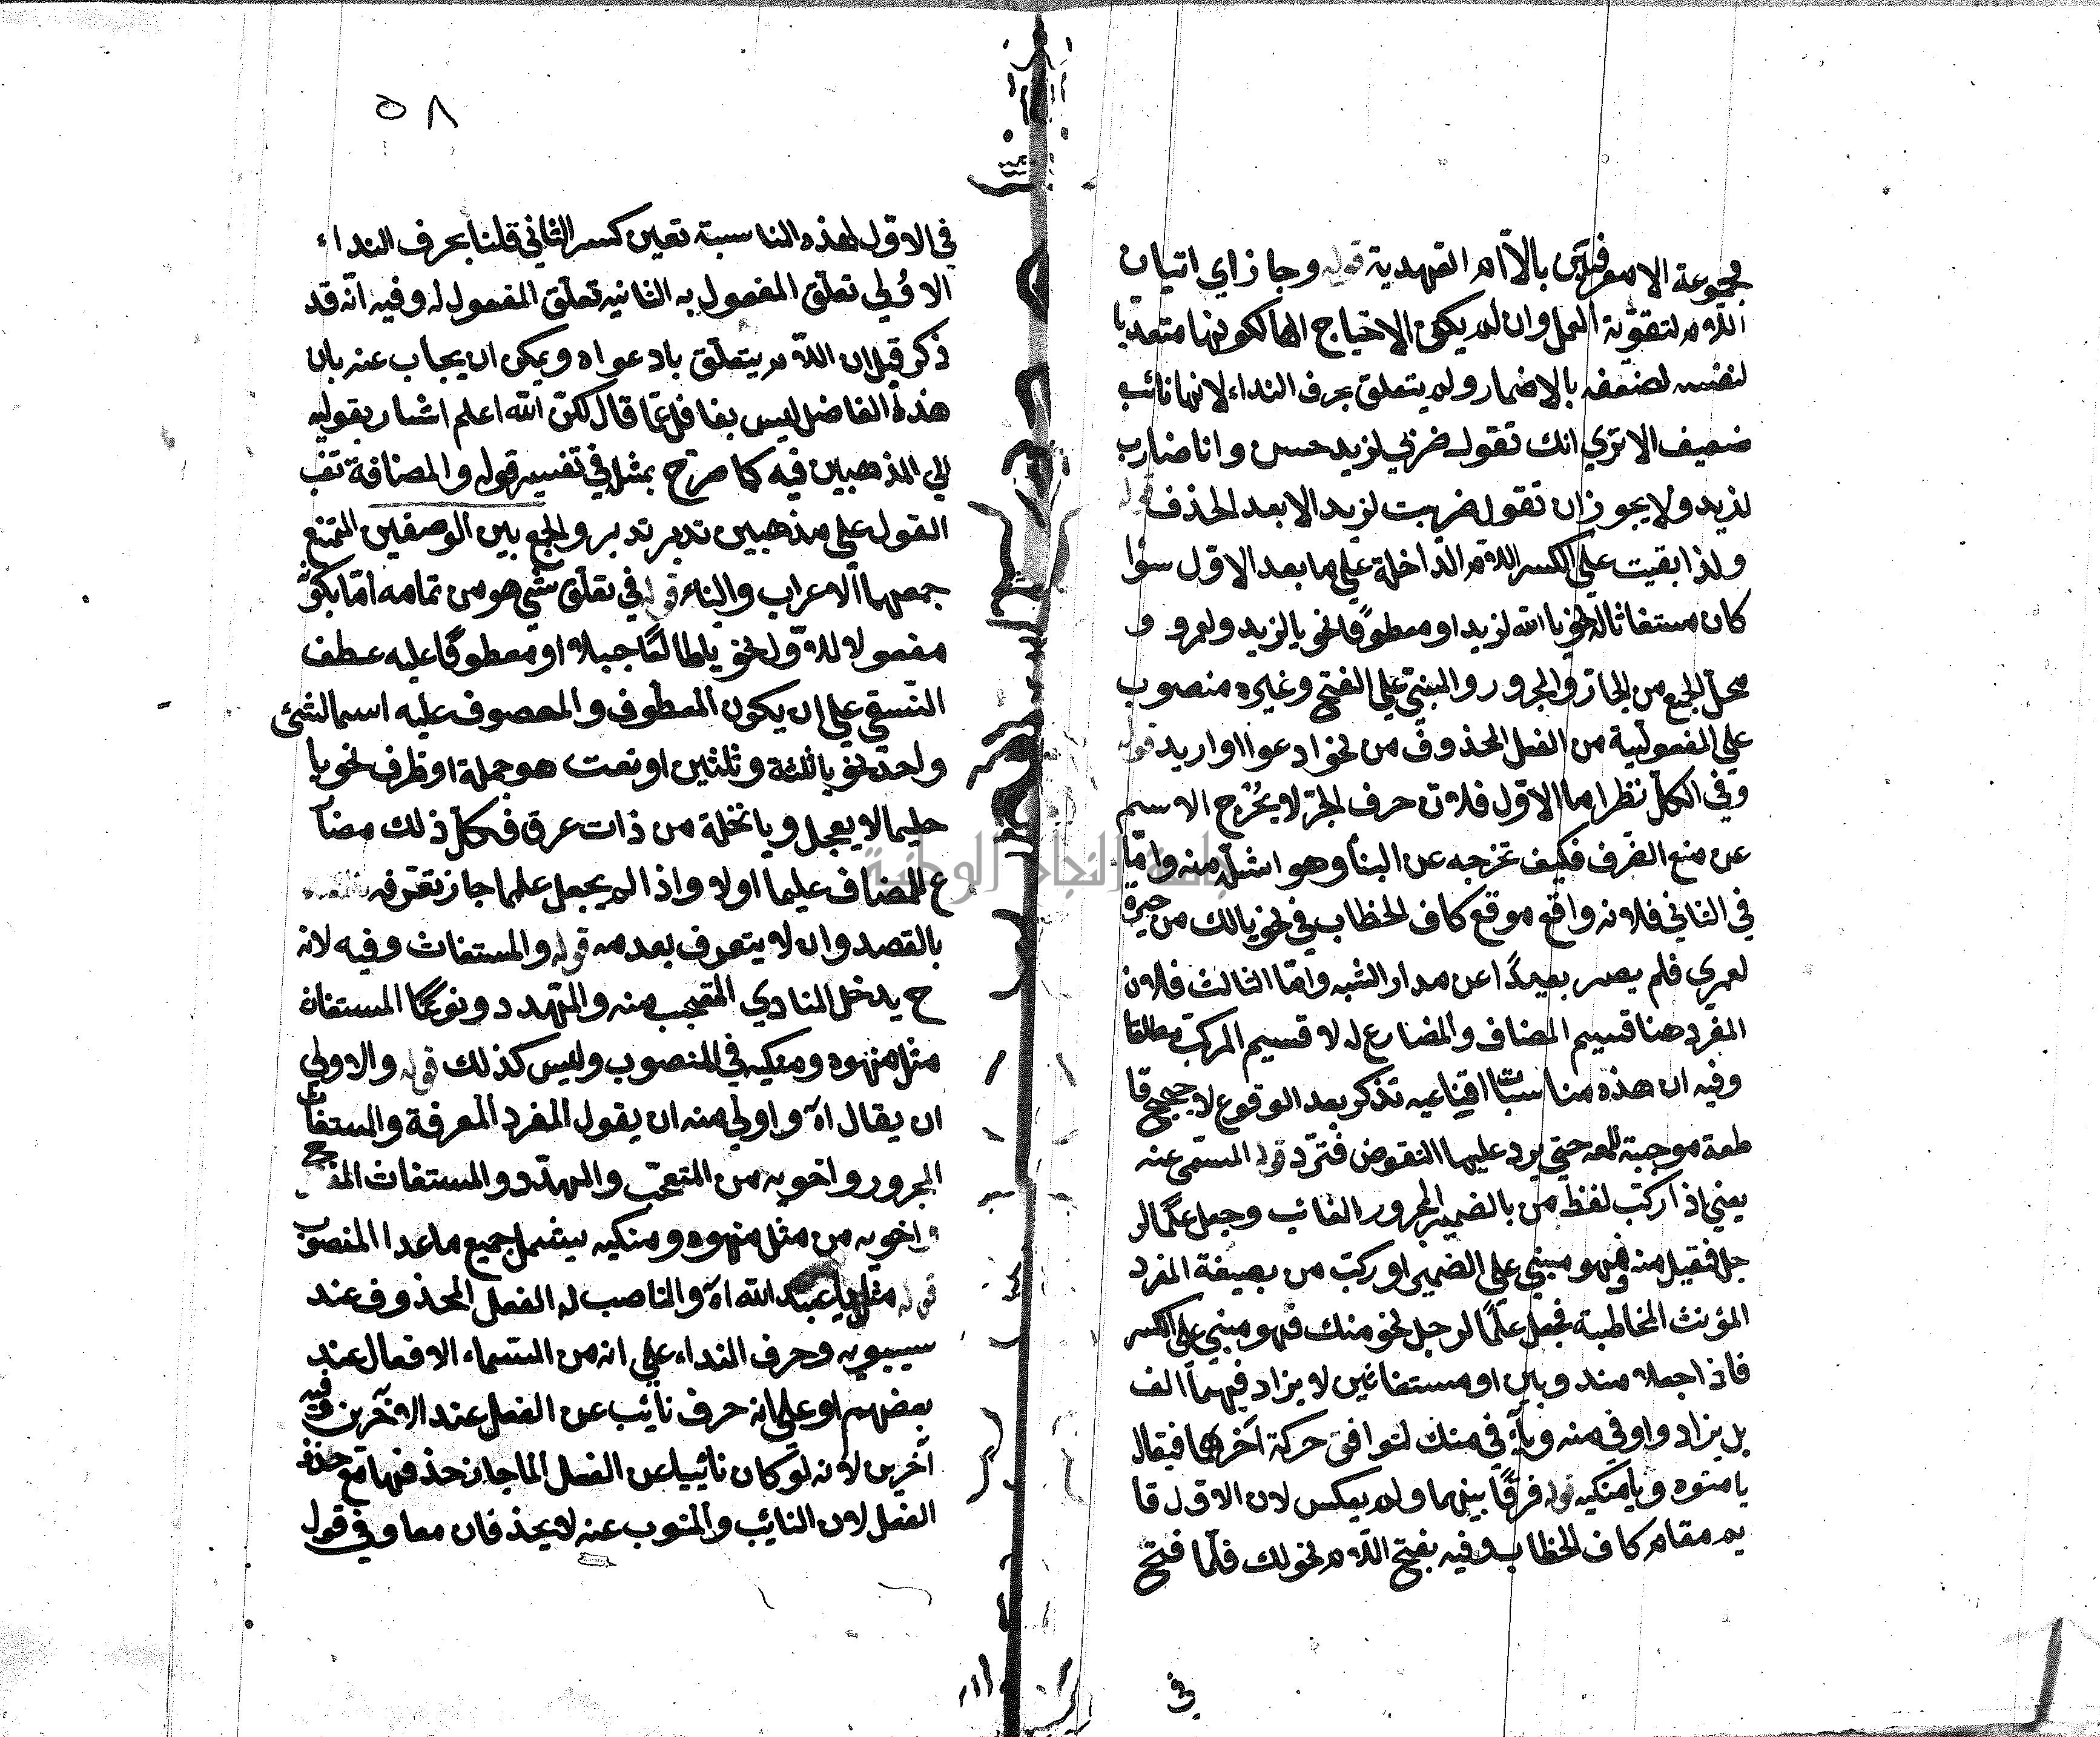 مجموعة الامعرفتين بالآم العهدية قوله وجاز اي اتيان
اللام لتقوية العمل وان لم يكن الاحتياج الها لكونها متعديا
لنفسه لضعفه بالاضمار ولم يتعلق بحرف النداء لانها نائب
ضعيف الا تري انك تقول ضربي لزيد حسن وانا ضارب
لزيد ولا يجوز ان تقول ضربت لزيد الا بعد الحذف قوله
ولذا بقيت علي الكسر اللام الداخلة علي ما بعد الاول سوا
كان مستغاثا له نحو يا الله لزيد او معطوفا نحو يا لزيد ولعمرو و
محل الجميع من الجار والمجرور والمبني علي الفتح وغيره منصوب
علي المفعولية من الفعل المحذوف من نحو ادعوا او اريد قوله
وفي الكل نظر اما الاول فلان حرف الجر لا يخرج الاسم
عن منع الصرف فكيف تخرجه عن البنا وهو اشد منه واما
في الثاني فلانه واقع موقع كاف الخطاب في نحو يالك من حيرة
لعمري فلم يصر بعيدا عن مدار الشبه واما الثالث فلان
المفرد هنا قسيم المضاف والمضارع له لا قسيم المركب مطلقا
وفيه ان هذه مناسبات اقناعيه تذكر بعد الوقوع لا حجج قا
طعة موجبة للعه حتي يرد عليها النقوض فترد قوله المسمي عنه
يعني اذا ركب لفظ من بالضمير المجرور الغائب وجعل علما لر
جل فقيل منه فهو مبني علي الضمير او ركب من بصيغة المفرد
المؤنث المخاطبة فجعل علما لرجل نحو منك فهو مبني علي الكسر
فاذا جعلا مندوبين او مستغاثين لا يزاد فيهما الف
بل يزاد واو في منه وياء في منك لتوافق حركة آخرهما فيقال
يا منهوه ويا منكيه قوله فرقا بينهما ولم يعكس لان الاول قا
يم مقام كاف الخطاب وفيه بفتح اللام نحو لك فلما فتح
في
٥٨
في الاول لهذه المناسبة تعين كسر الثاني قلنا بحرف النداء
الاولي تعلق المفعول به الثانيه تعلق المفعول له وفيه انه قد
ذكر قبل ان اللام يتعلق بادعواه ويمكن ان يجاب عنه بان
هذا الفاضل ليس بغافل عما قال لكن الله اعلم اشار بقوليه
الي المذهبين فيه كما صرح بمثل في تفسير قوله والمضافة تقب
القول علي مذهبين تدبر تدبر والجمع بين الوصفين الممتنع
جمعهما الاعراب والبناء قوله في تعلق شي هو من تمامه اما بكونه
مفعولا للاول نحو يا طالعا جبلا او معطوفا عليه عطف
النسق علي ان يكون المعطوف والمعصوف عليه اسما لشئ
واحد نحو يا ثلثة وثلثين او نعت هو جملة او ظرف نحو يا
حليما لا يعجل ويا نخلة من ذات عرق فكل ذلك مضآ
ع للمضاف عليما اولا واذا لم يجعل علما جاز تعرفه
بالقصد وان لا يتعرف بعدمه قوله والمستغاث وفيه لانه
ح يدخل المنادي المتعجب منه والمتهدد ونوعا المستغاث
مثل منهوه ومنكيه في المنصوب وليس كذلك قوله والاولي
ان يقال اه واولي منه ان يقول المفرد المعرفة والمستغاث
المجرور واخويه من المتعجب والمهدد والمستغاث المفتح
واخويه من مثل منهوه ومنكيه يشمل جميع ما عدا المنصوب
قوله مثل يا عبد الله اه والناصب له الفعل المحذوف عند
سيبويه وحرف النداء علي انه من اسماء الافعال عند
بعضهم او علي انه حرف نائب عن الفعل عند الآخرين وفيه
آخرين لانه لو كان نائبيا عن الفعل لما جاز حذفها مع حذف
الفعل لان النائب والمنوب عنه لا يحذفان معا وفي قول
جامعة النجاح الوطنية